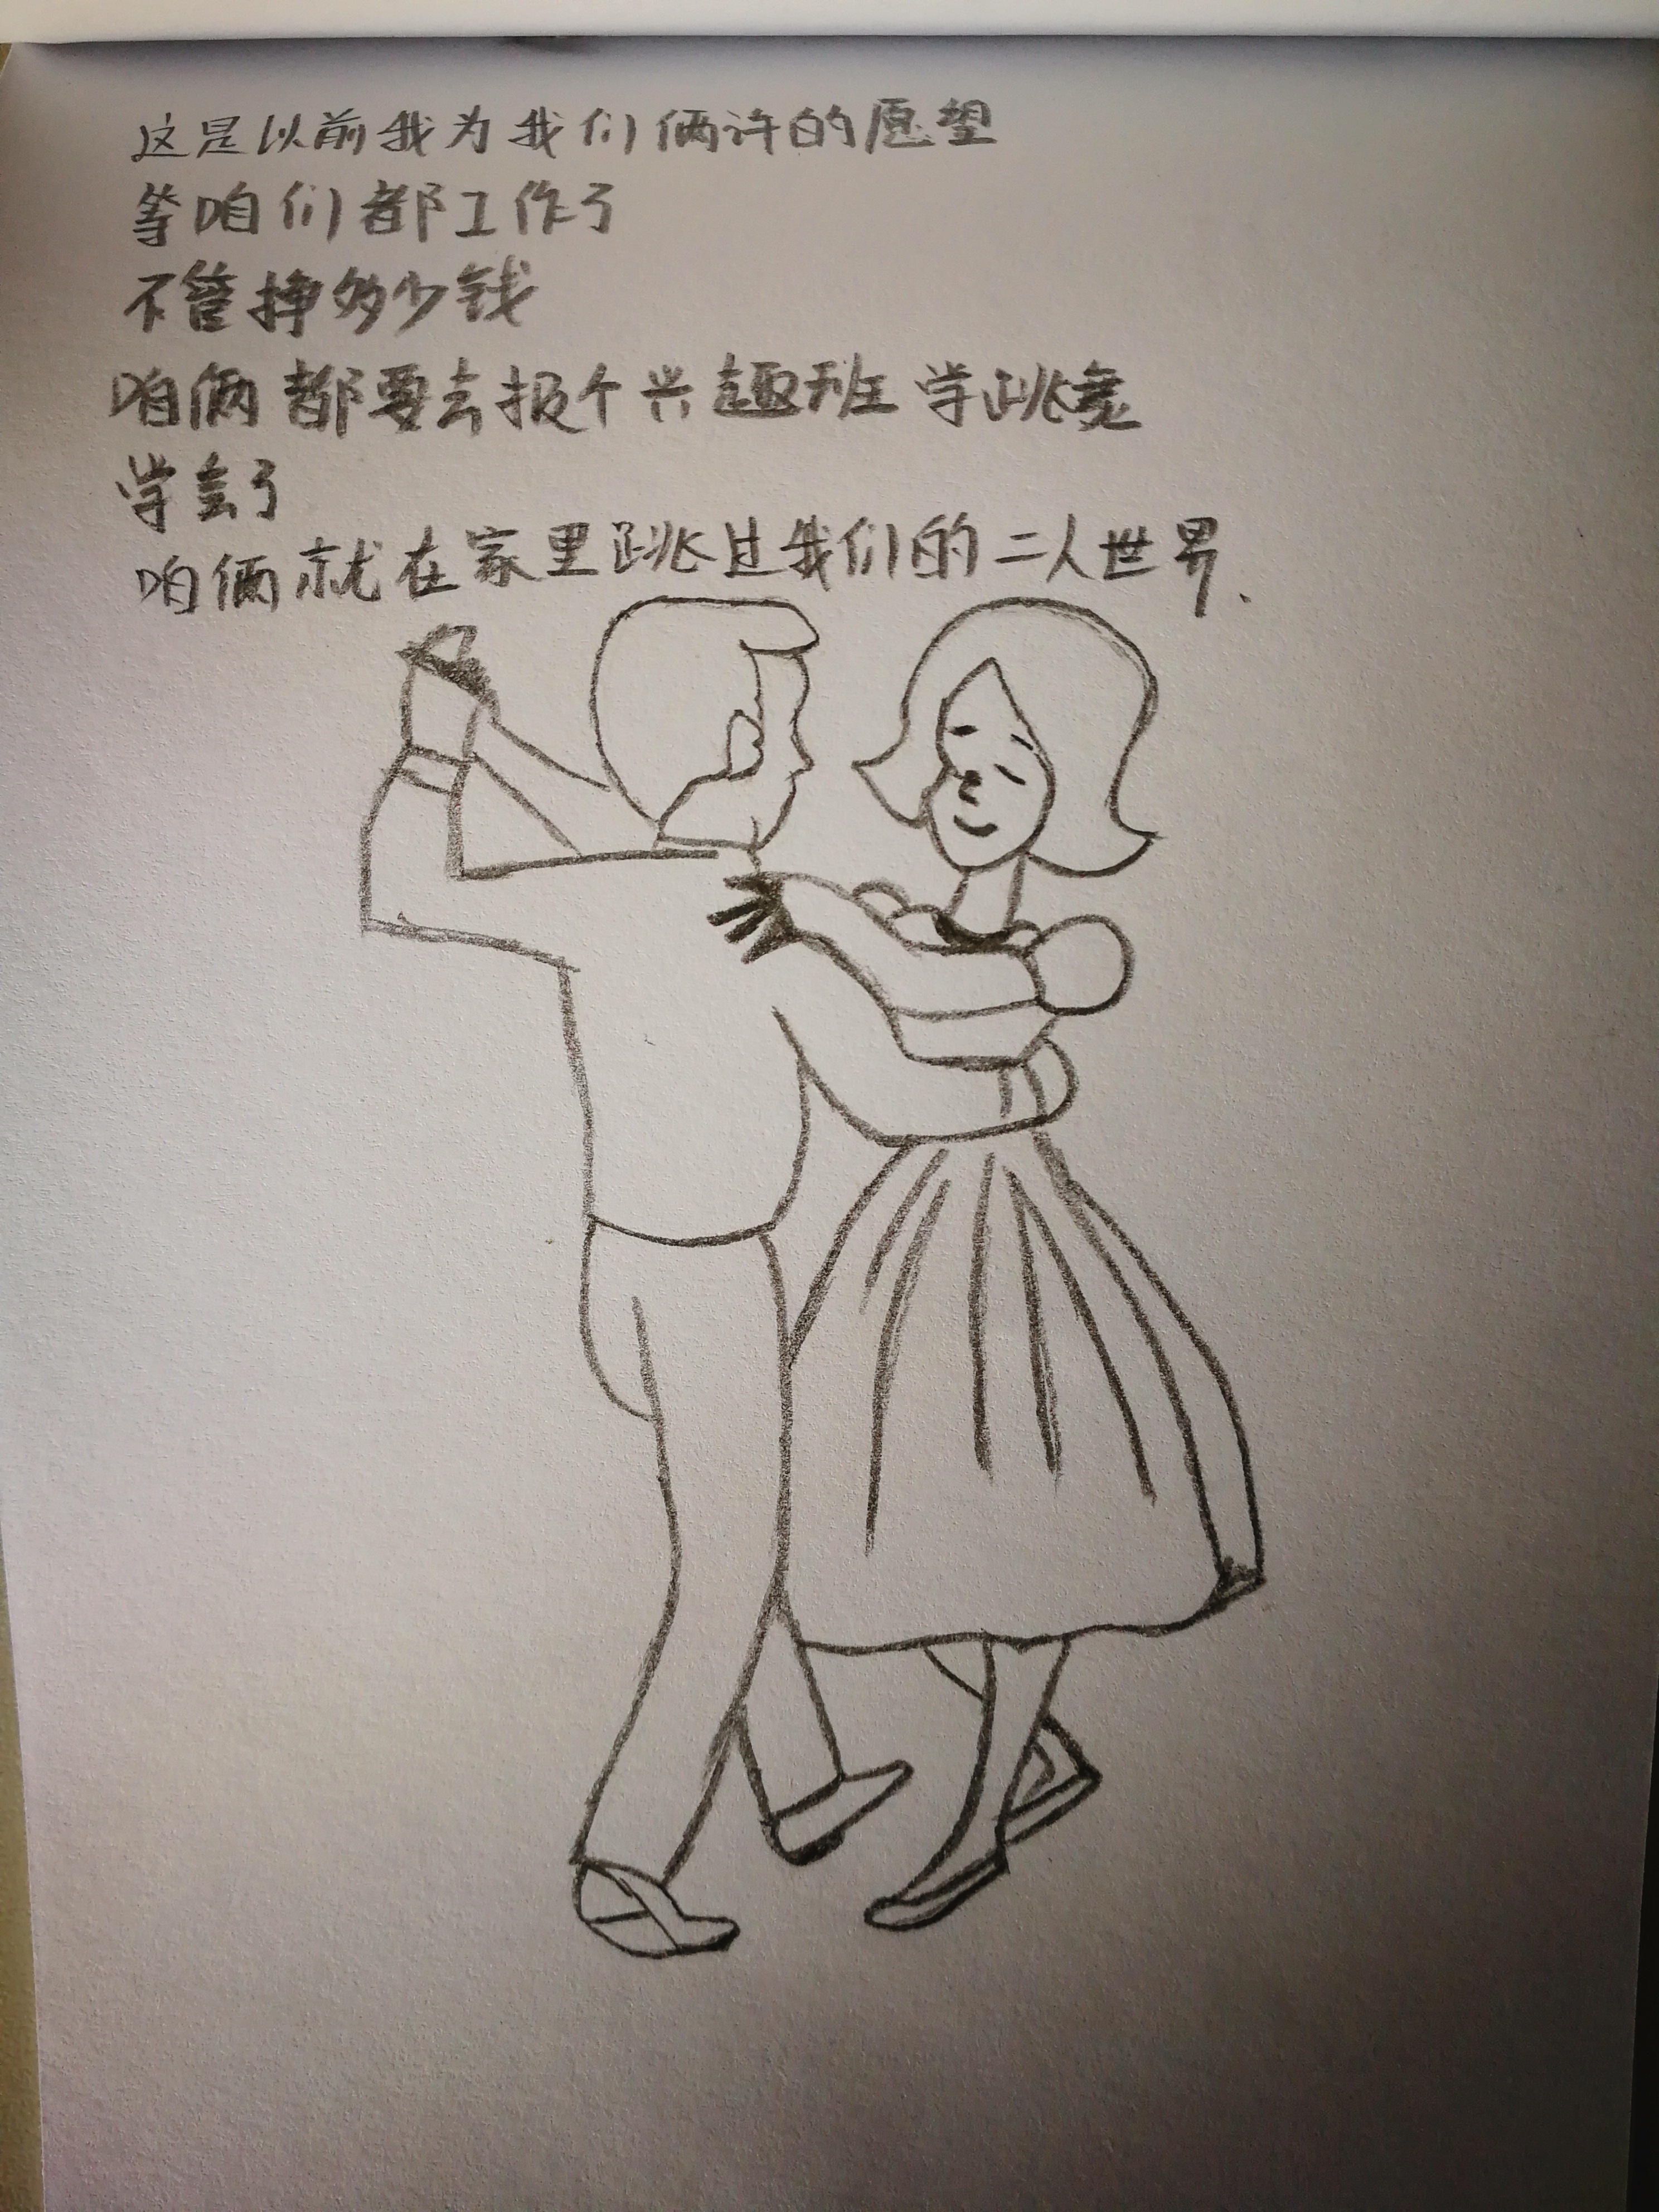 这是以前我为我们俩许的愿望
等咱们都工作了
不管挣多少钱
咱俩都要去报个兴趣班学跳舞
学会了
咱俩就在家里跳过我们的二人世界.